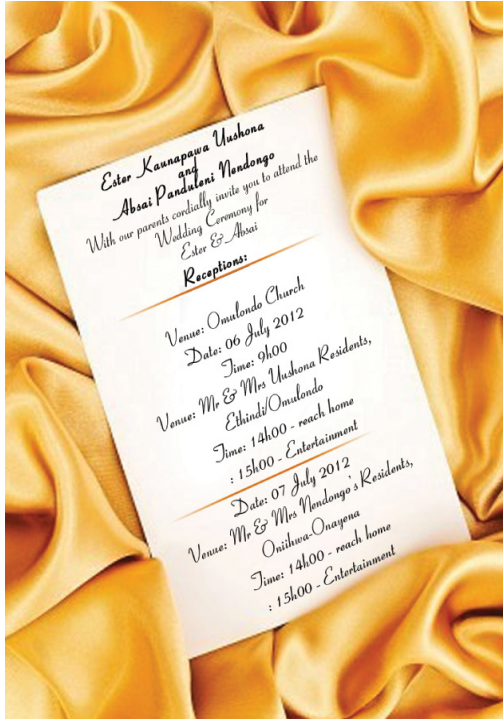 Ester Kaunapawa Uushona
and
Absai Panduleni Nendongo
With our parents cordially invite you to attend the
Wedding Ceremony for
Ester & Absai
Receptions:
Venue: Omulondo Church
Date: 06 July 2012
Time: 9h00
Venue: Mr & Mrs Uushona Residents,
Ethindi/Omulondo
Time: 14h00 - reach home
: 15h00 - Entertainment
Date: 07 July 2012
Venue: Mr & Mrs Nendongo's Residents,
Oniihwa-Onayena
Time: 14h00 - reach home
: 15h00 - Entertainment